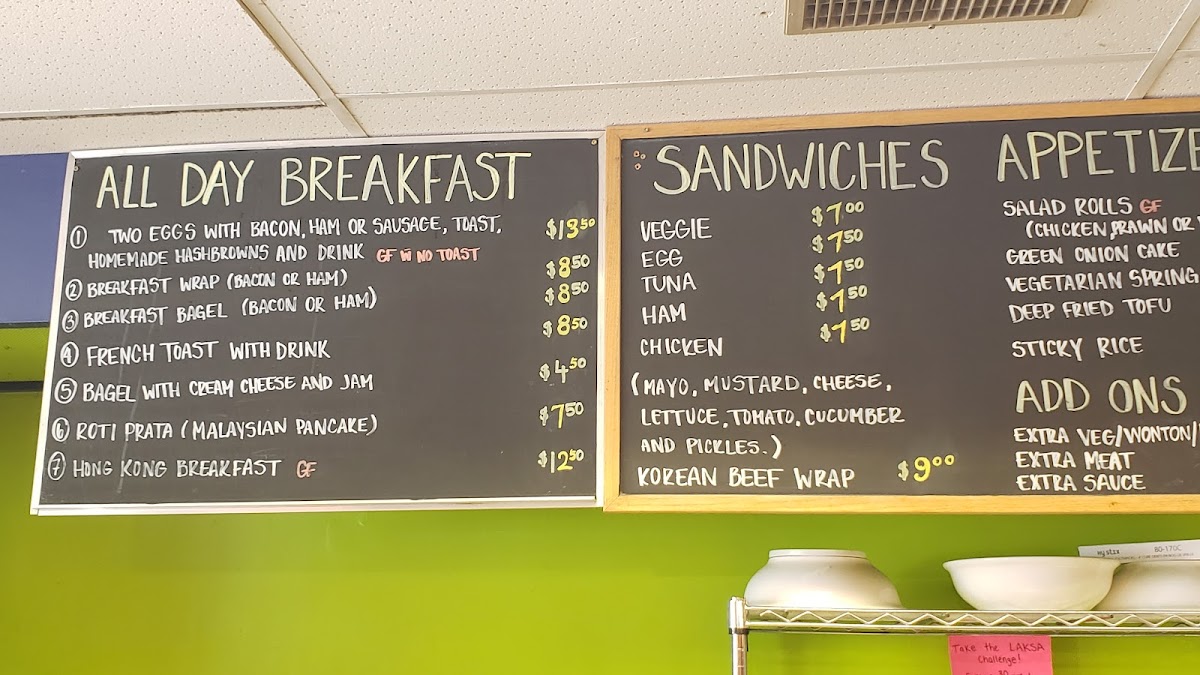 ALL DAY BREAKFAST
① TWO EGGS WITH BACON, HAM OR SAUSAGE, TOAST, $13.50
HOMEMADE HASHBROWNS AND DRINK GF W NO TOAST
② BREAKFAST WRAP (BACON OR HAM) $8.50
③ BREAKFAST BAGEL (BACON OR HAM) $8.50
④ FRENCH TOAST WITH DRINK $8.50
⑤ BAGEL WITH CREAM CHEESE AND JAM $4.50
⑥ ROTI PRATA (MALAYSIAN PANCAKE) $7.50
⑦ HONG KONG BREAKFAST GF $12.50
SANDWICHES
VEGGIE $7.00
EGG $7.50
TUNA $7.50
HAM $7.50
CHICKEN $7.50
(MAYO, MUSTARD, CHEESE,
LETTUCE, TOMATO, CUCUMBER
AND PICKLES.)
KOREAN BEEF WRAP $9.00
APPETIZE
SALAD ROLLS GF
(CHICKEN, PRAWN OR
GREEN ONION CAKE
VEGETARIAN SPRING
DEEP FRIED TOFU
STICKY RICE
ADD ONS
EXTRA VEG/WONTON/
EXTRA MEAT
EXTRA SAUCE
80-170C
Take the LAKSA
Challenge!